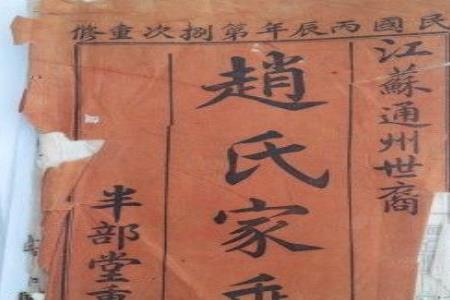 民國丙辰年第捌次重修
江蘇通州世裔
趙氏家乘
半部堂重